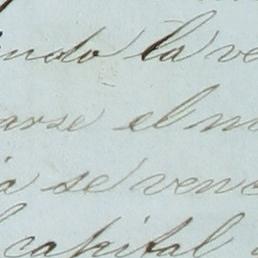 indo la ve
arse el m
a se venc
l capital